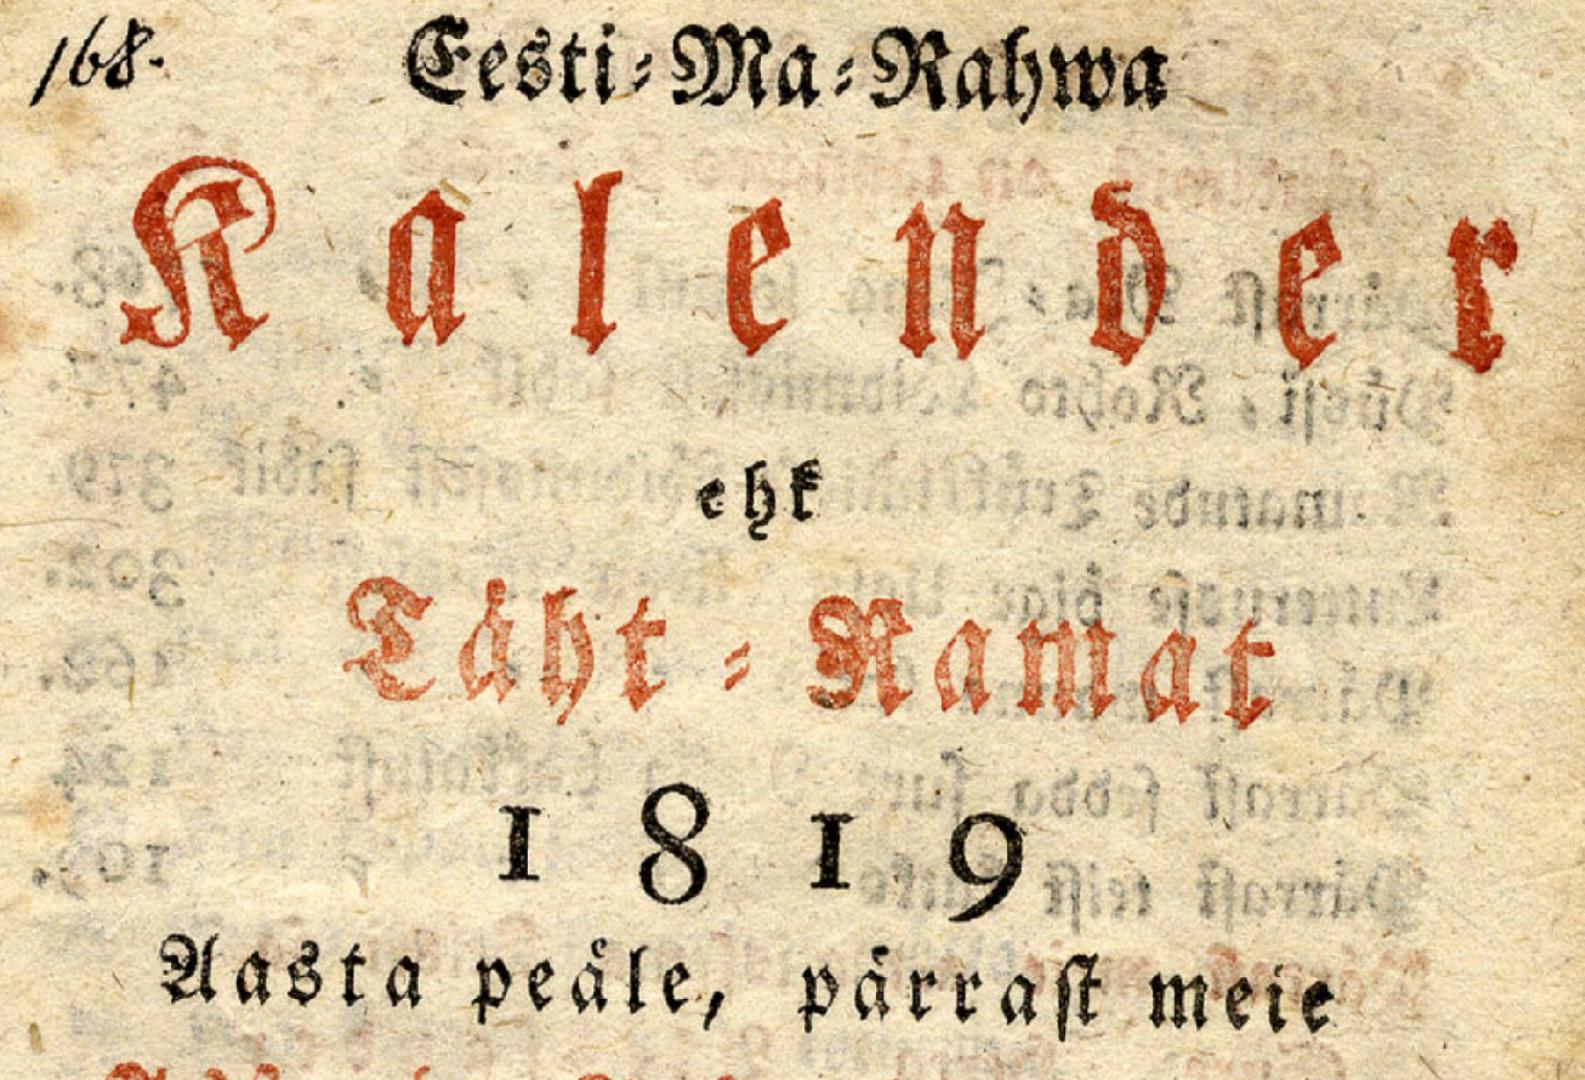 168.
Eesti-Ma-Rahwa
Kalender
ehk
Täht-Ramat
1819
Aasta peäle, pärrast meie